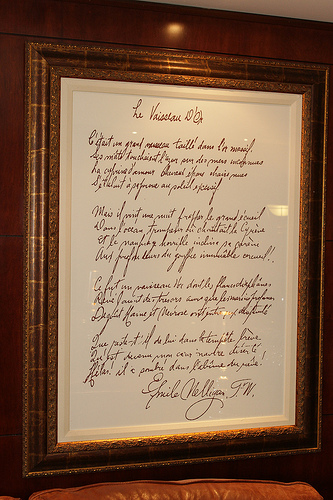 Le Vaisseau D'Or
C'était un grand vaisseau taillé dans l'or massif
Ses mâts touchaient l'azur sur des mers inconnues
La cyprine d'amour cheveux épars chairs nues
S'étalait à sa proue au soleil excessif
Mais il vint une nuit frapper le grand écueil
Dans l'océan trompeur où chantait la Sirène
Et le naufrage horrible inclina sa carène
Aux profondeurs du gouffre immuable cercueil.
Ce fut un vaisseau d'or dont les flancs diaphanes
Révélaient des trésors que les marins profanes
Dégoût Haine et Névrose ont entre eux disputés
Que reste-t-il de lui dans la tempête brève
Qu'est devenu mon cœur navire déserté
Hélas! il a sombré dans l'abîme du rêve!
Émile Nelligan